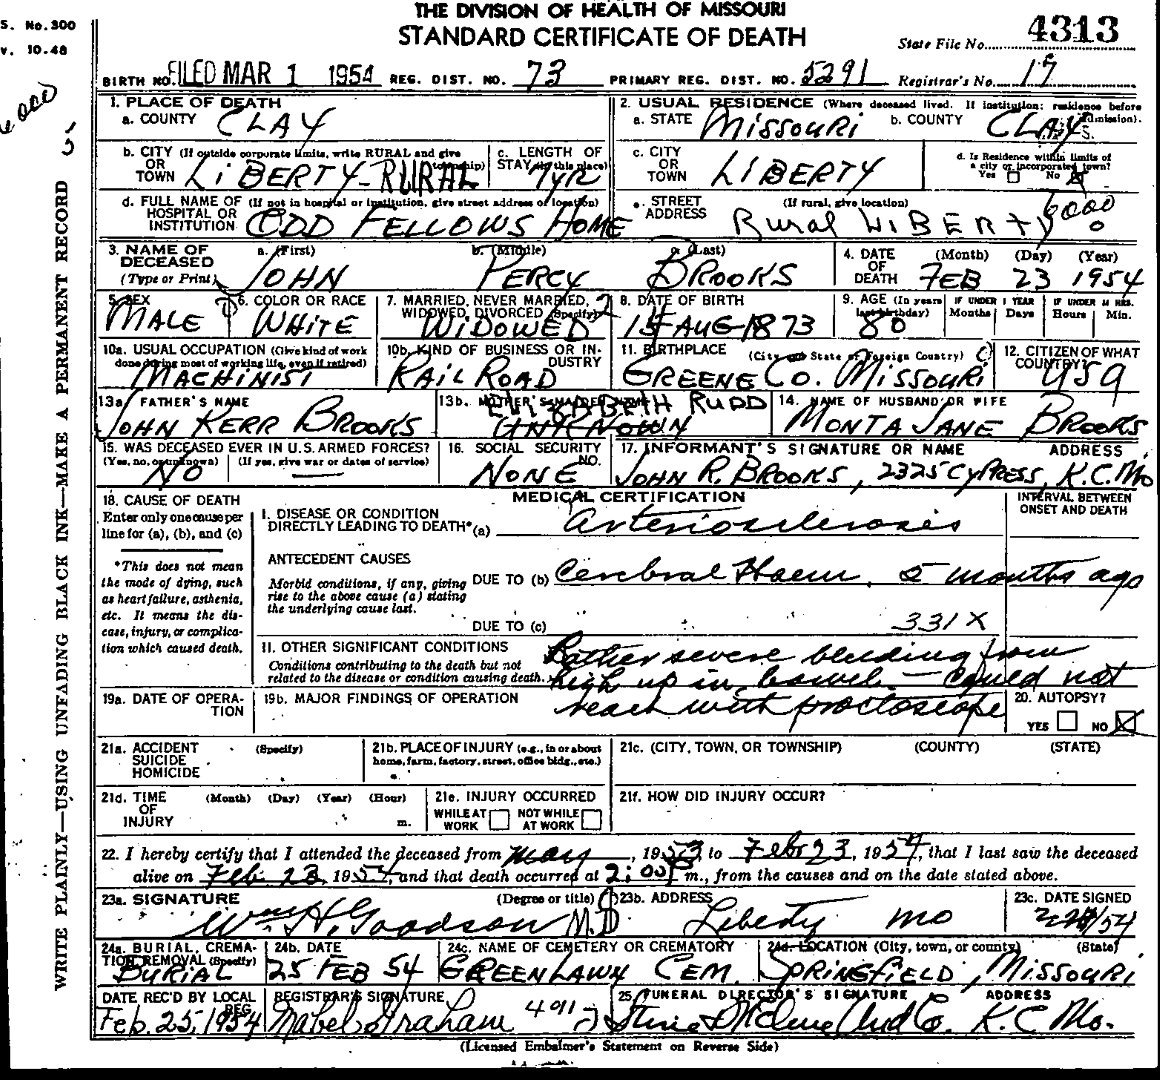 THE DIVISION OF HEALTH OF MISSOURI
STANDARD CERTIFICATE OF DEATH
S. No.300
v. 10-48
State File No. 4313
BIRTH NO. FILED MAR 1 1954 REG. DIST. NO. 73 PRIMARY REG. DIST. NO. 5291 Registrar's No. 19
1. PLACE OF DEATH
a. COUNTY CLAY
2. USUAL RESIDENCE (Where deceased lived. If institution: residence before admission).
a. STATE Missouri b. COUNTY CLAY
b. CITY (If outside corporate limits, write RURAL and give township) OR TOWN LIBERTY-RURAL
c. LENGTH OF STAY (in this place) 7yr
c. CITY OR TOWN LIBERTY
d. Is Residence within limits of a city or incorporated town? Yes No
d. FULL NAME OF HOSPITAL OR INSTITUTION (If not in hospital or institution, give street address or location) ODD FELLOWS HOME
e. STREET ADDRESS (If rural, give location) Rural LIBERTY
3. NAME OF DECEASED (Type or Print) a. (First) JOHN b. (Middle) PERCY c. (Last) BROOKS
4. DATE OF DEATH (Month) (Day) (Year) FEB 23 1954
5. SEX MALE
6. COLOR OR RACE WHITE
7. MARRIED, NEVER MARRIED, WIDOWED, DIVORCED (Specify) WIDOWED
8. DATE OF BIRTH 15 AUG-1873
9. AGE (In years last birthday) 80
IF UNDER 1 YEAR Months Days
IF UNDER 24 HRS. Hours Min.
10a. USUAL OCCUPATION (Give kind of work done during most of working life, even if retired) MACHINIST
10b. KIND OF BUSINESS OR INDUSTRY RAILROAD
11. BIRTHPLACE (City and State or Foreign Country) GREENE CO. MISSOURI
12. CITIZEN OF WHAT COUNTRY? USA
13a. FATHER'S NAME JOHN KERR BROOKS
13b. MOTHER'S MAIDEN NAME ELIZABETH RUDD UNKNOWN
14. NAME OF HUSBAND OR WIFE MONTA JANE BROOKS
15. WAS DECEASED EVER IN U.S. ARMED FORCES? (Yes, no, or unknown) (If yes, give war or dates of service) NO —
16. SOCIAL SECURITY NO. NONE
17. INFORMANT'S SIGNATURE OR NAME ADDRESS
JOHN R. BROOKS, 2325 CYPRESS, K.C. Mo
18. CAUSE OF DEATH
Enter only one cause per line for (a), (b), and (c)
*This does not mean the mode of dying, such as heart failure, asthenia, etc. It means the disease, injury, or complication which caused death.
MEDICAL CERTIFICATION
INTERVAL BETWEEN ONSET AND DEATH
I. DISEASE OR CONDITION DIRECTLY LEADING TO DEATH* (a) Arteriosclerosis
ANTECEDENT CAUSES
Morbid conditions, if any, giving rise to the above cause (a) stating the underlying cause last.
DUE TO (b) Cerebral Haem. 5 months ago
DUE TO (c) 331X
II. OTHER SIGNIFICANT CONDITIONS
Conditions contributing to the death but not related to the disease or condition causing death.
Rather severe bleeding from
high up in bowel — could not
reach with proctoscope
19a. DATE OF OPERATION
19b. MAJOR FINDINGS OF OPERATION
20. AUTOPSY? YES NO
21a. ACCIDENT SUICIDE HOMICIDE (Specify)
21b. PLACE OF INJURY (e.g., in or about home, farm, factory, street, office bldg., etc.)
21c. (CITY, TOWN, OR TOWNSHIP) (COUNTY) (STATE)
21d. TIME OF INJURY (Month) (Day) (Year) (Hour) m.
21e. INJURY OCCURRED WHILE AT WORK NOT WHILE AT WORK
21f. HOW DID INJURY OCCUR?
22. I hereby certify that I attended the deceased from May, 1953 to Feb 23, 1954, that I last saw the deceased
alive on Feb. 23, 1954, and that death occurred at 2:00P m., from the causes and on the date stated above.
23a. SIGNATURE (Degree or title) Wm H. Goodson M.D
23b. ADDRESS Liberty Mo
23c. DATE SIGNED
24a. BURIAL, CREMATION, REMOVAL (Specify) BURIAL
24b. DATE 25 FEB 54
24c. NAME OF CEMETERY OR CREMATORY GREENLAWN CEM.
24d. LOCATION (City, town, or county) (State) SPRINGFIELD, MISSOURI
DATE REC'D BY LOCAL REG. Feb. 25, 1954
REGISTRAR'S SIGNATURE Mabel Graham
25. FUNERAL DIRECTOR'S SIGNATURE ADDRESS
K.C. Mo.
(Licensed Embalmer's Statement on Reverse Side)
WRITE PLAINLY—USING UNFADING BLACK INK—MAKE A PERMANENT RECORD